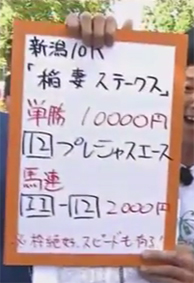 新潟10R
「稲妻ステークス」
単勝 10000円
12 プレシャスエース
馬連
11-12 2000円
※枠絶好、スピードも有る!